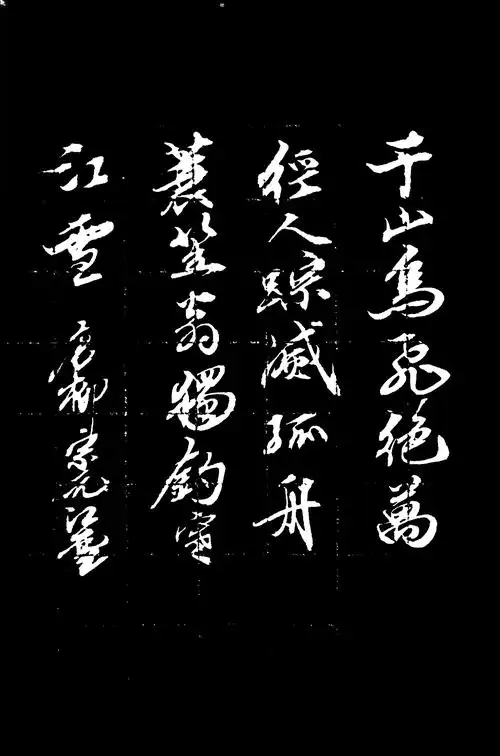 千山鳥飛絶萬
徑人踪滅孤舟
蓑笠翁獨釣寒
江雪 唐柳宗元江雪